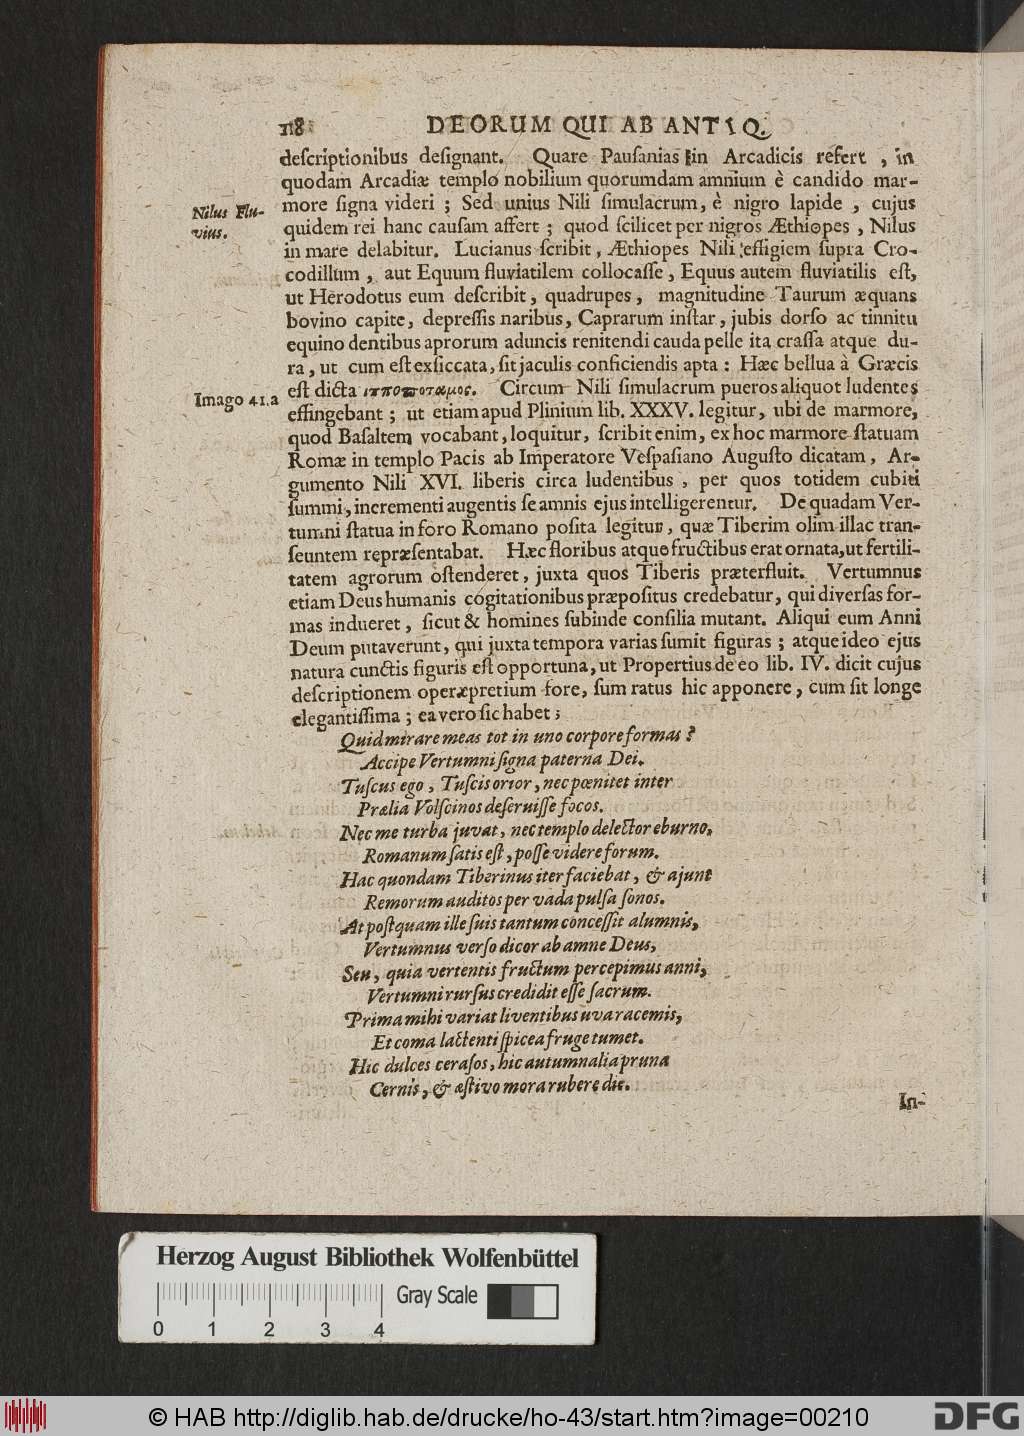 118 DEORUM QUI AB ANTIQ.
deſcriptionibus deſignant. Quare Pauſanias in Arcadicis refert , in
quodam Arcadiæ templo nobilium quorumdam amnium è candido mar-
Nilus Flu-
vius.
more ſigna videri ; Sed unius Nili ſimulacrum, è nigro lapide , cujus
quidem rei hanc cauſam affert ; quod ſcilicet per nigros Æthiopes , Nilus
in mare delabitur. Lucianus ſcribit, Æthiopes Nili effigiem ſupra Cro-
codillum , aut Equum fluviatilem collocaſſe, Equus autem fluviatilis eſt,
ut Herodotus eum deſcribit, quadrupes, magnitudine Taurum æquans
bovino capite, depreſſis naribus, Caprarum inſtar, jubis dorſo ac tinnitu
equino dentibus aprorum aduncis renitendi cauda pelle ita craſſa atque du-
ra, ut cum eſt exſiccata, ſit jaculis conficiendis apta : Hæc bellua à Græcis
Imago 41.a
eſt dicta ιπποποταμος. Circum Nili ſimulacrum pueros aliquot ludentes
effingebant ; ut etiam apud Plinium lib. XXXV. legitur, ubi de marmore,
quod Baſaltem vocabant, loquitur, ſcribit enim, ex hoc marmore ſtatuam
Romæ in templo Pacis ab Imperatore Veſpaſiano Auguſto dicatam, Ar-
gumento Nili XVI. liberis circa ludentibus , per quos totidem cubiti
ſummi, incrementi augentis ſe amnis ejus intelligerentur. De quadam Ver-
tumni ſtatua in foro Romano poſita legitur, quæ Tiberim olim illac tran-
ſeuntem repræſentabat. Hæc floribus atque fructibus erat ornata, ut fertili-
tatem agrorum oſtenderet, juxta quos Tiberis præterfluit. Vertumnus
etiam Deus humanis cogitationibus præpoſitus credebatur, qui diverſas for-
mas indueret, ſicut & homines ſubinde conſilia mutant. Aliqui eum Anni
Deum putaverunt, qui juxta tempora varias ſumit figuras ; atque ideo ejus
natura cunctis figuris eſt opportuna, ut Propertius de eo lib. IV. dicit cujus
deſcriptionem operæpretium fore, ſum ratus hic apponere, cum ſit longe
elegantiſſima ; ea vero ſic habet ;
Quid mirare meas tot in uno corpore formas ?
Accipe Vertumni ſigna paterna Dei.
Tuſcus ego , Tuſcis orior, nec pœnitet inter
Prælia Volſcinos deſeruiſſe focos.
Nec me turba juvat, nec templo delector eburno,
Romanum ſatis eſt, poſſe videre forum.
Hac quondam Tiberinus iter faciebat, & ajunt
Remorum auditos per vada pulſa ſonos.
At poſtquam ille ſuis tantum conceſſit alumnis,
Vertumnus verſo dicor ab amne Deus,
Seu, quia vertentis fructum percepimus anni,
Vertumni rurſus credidit eſſe ſacrum.
Prima mihi variat liventibus uva racemis,
Et coma lactenti ſpicea fruge tumet.
Hic dulces ceraſos, hic autumnalia pruna
Cernis, & æſtivo mora rubere die.
In-
Herzog August Bibliothek Wolfenbüttel
Gray Scale
0 1 2 3 4
© HAB http://diglib.hab.de/drucke/ho-43/start.htm?image=00210
DFG